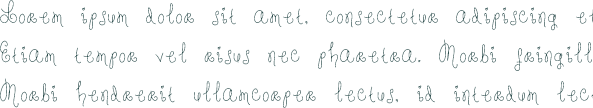 Lorem ipsum dolor sit amet, consectetur adipiscing et
Etiam tempor vel risus nec pharetra. Morbi fringill
Morbi hendrerit ullamcorper lectus, id interdum lec